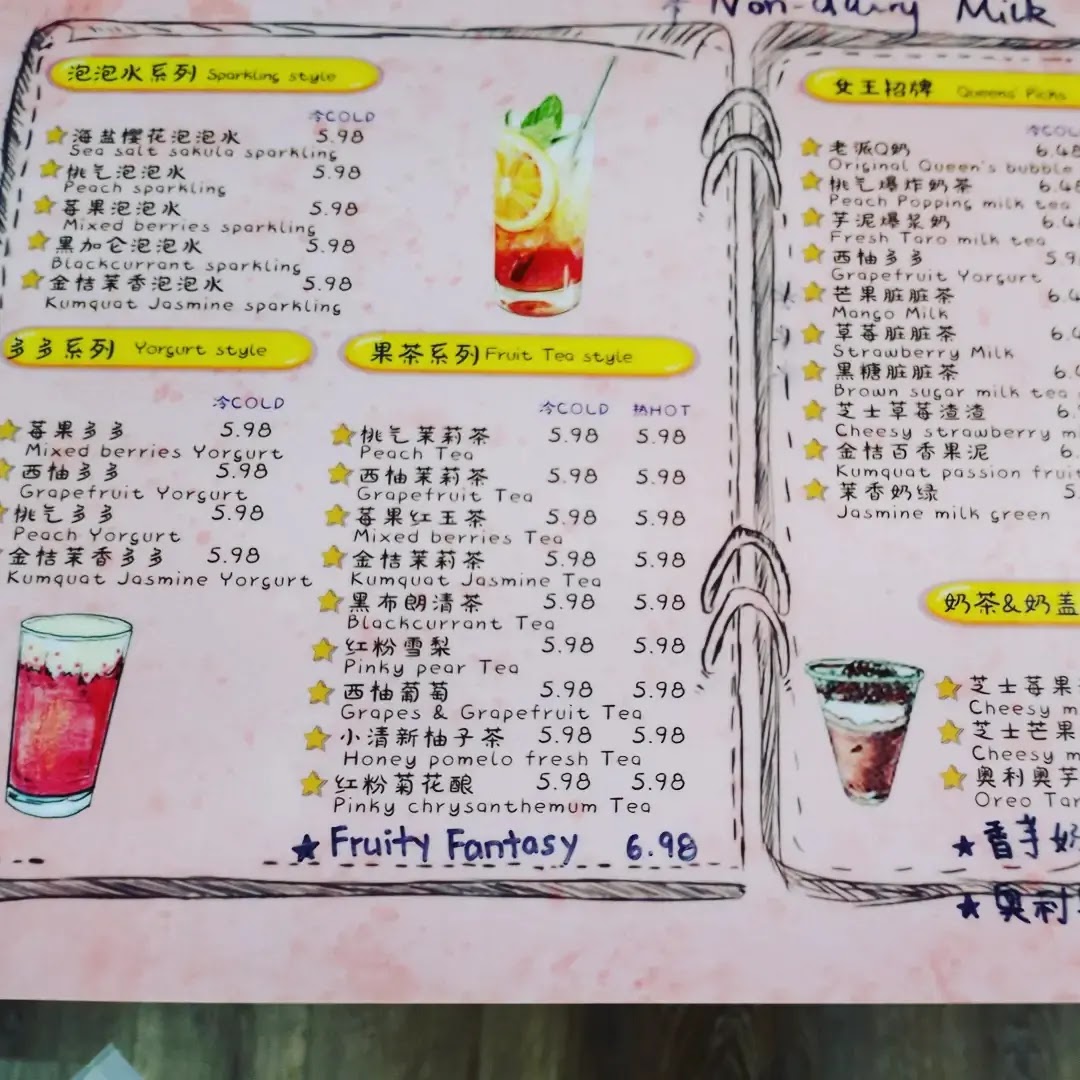 Non-dairy Milk
泡泡水系列 Sparkling style
冷COLD
海盐樱花泡泡水 5.98
Sea salt sakula sparkling
桃气泡泡水 5.98
Peach sparkling
莓果泡泡水 5.98
Mixed berries sparkling
黑加仑泡泡水 5.98
Blackcurrant sparkling
金桔茉香泡泡水 5.98
Kumquat Jasmine sparkling
多多系列 Yorgurt style
冷COLD
莓果多多 5.98
Mixed berries Yorgurt
西柚多多 5.98
Grapefruit Yorgurt
桃气多多 5.98
Peach Yorgurt
金桔茉香多多 5.98
Kumquat Jasmine Yorgurt
果茶系列 Fruit Tea style
冷COLD 热HOT
桃气茉莉茶 5.98 5.98
Peach Tea
西柚茉莉茶 5.98 5.98
Grapefruit Tea
莓果红玉茶 5.98 5.98
Mixed berries Tea
金桔茉莉茶 5.98 5.98
Kumquat Jasmine Tea
黑布朗清茶 5.98 5.98
Blackcurrant Tea
红粉雪梨 5.98 5.98
Pinky pear Tea
西柚葡萄 5.98 5.98
Grapes & Grapefruit Tea
小清新柚子茶 5.98 5.98
Honey pomelo fresh Tea
红粉菊花酿 5.98 5.98
Pinky chrysanthemum Tea
★ Fruity Fantasy 6.98
女王招牌 Queens' Picks
冷COL
老派Q奶 6.48
Original Queen's bubble
桃气爆炸奶茶 6.48
Peach Popping milk tea
芋泥爆浆奶 6.4
Fresh Taro milk tea
西柚多多 5.9
Grapefruit Yorgurt
芒果脏脏茶 6.4
Mango Milk
草莓脏脏茶 6.4
Strawberry Milk
黑糖脏脏茶 6.4
Brown sugar milk tea
芝士草莓渣渣 6.
Cheesy strawberry m
金桔百香果泥 6.
Kumquat passion fruit
茉香奶绿 5
Jasmine milk green
奶茶&奶盖
芝士莓果
Cheesy m
芝士芒果
Cheesy m
奥利奥芋
Oreo Tar
★ 香芋奶
★ 奥利